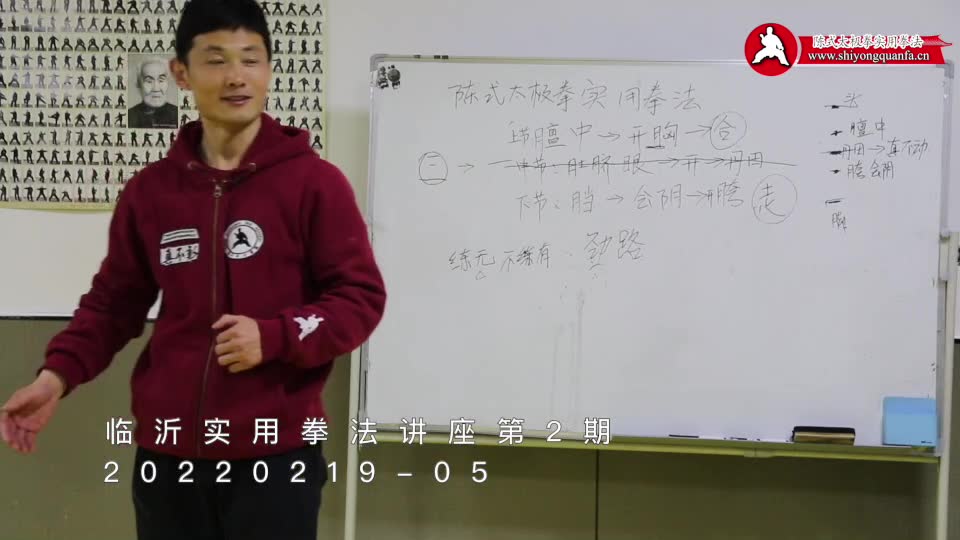 陈式太极拳实用拳法
www.shiyongquanfa.cn
陈式太极拳实用拳法
上节膻中→开胸→合
二→中节:肚脐眼→开→丹田
下节:裆→会阴→开胯 走
练无不练有:劲路
头
膻中
丹田→真不动
胯会阴
真不动
临沂实用拳法讲座第2期
20220219-05